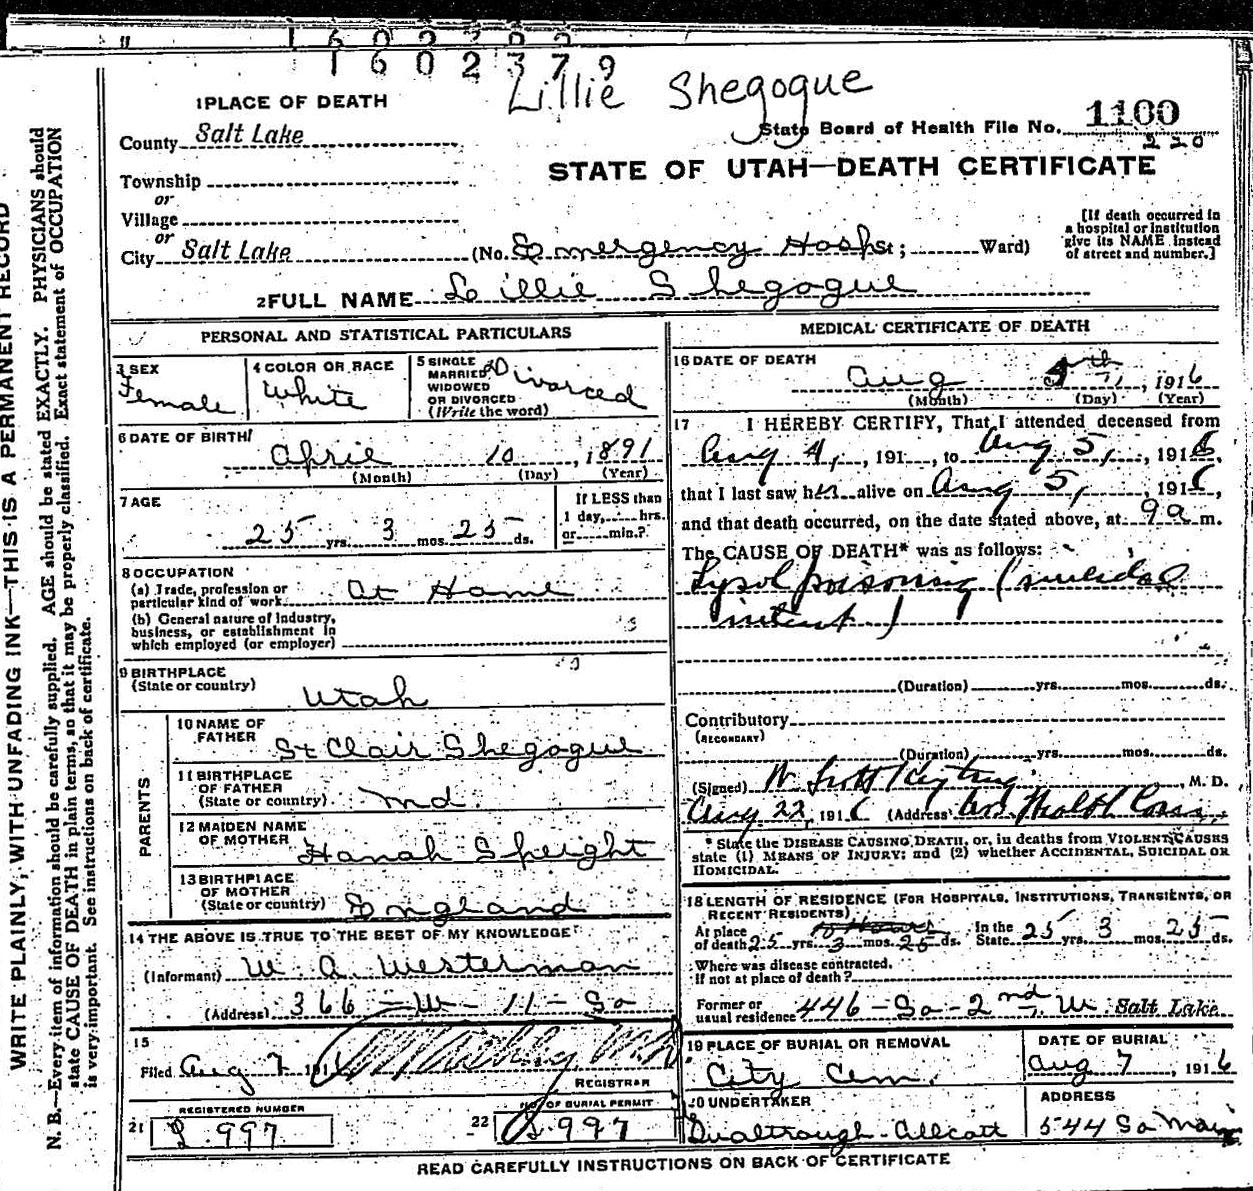 1602379
Lillie Shegogue
1 PLACE OF DEATH
County Salt Lake
State Board of Health File No. 1100
220
STATE OF UTAH—DEATH CERTIFICATE
Township
or
Village
or
City Salt Lake (No. Emergency Hosp St; Ward)
[If death occurred in
a hospital or institution
give its NAME instead
of street and number.]
2 FULL NAME Lillie Shegogue
PERSONAL AND STATISTICAL PARTICULARS
3 SEX
Female
4 COLOR OR RACE
White
5 SINGLE
MARRIED,
WIDOWED
OR DIVORCED
(Write the word)
Divorced
6 DATE OF BIRTH
April 10, 1891
(Month) (Day) (Year)
7 AGE
25 yrs. 3 mos. 25 ds.
If LESS than
1 day, hrs.
or min.?
8 OCCUPATION
(a) Trade, profession or
particular kind of work At Home
(b) General nature of industry,
business, or establishment in
which employed (or employer)
9 BIRTHPLACE
(State or country)
Utah
PARENTS
10 NAME OF
FATHER
St Clair Shegogue
11 BIRTHPLACE
OF FATHER
(State or country) Md.
12 MAIDEN NAME
OF MOTHER
Hanah Speight
13 BIRTHPLACE
OF MOTHER
(State or country) England
14 THE ABOVE IS TRUE TO THE BEST OF MY KNOWLEDGE
(Informant) W. A. Westerman
(Address) 366 - W - 11 - So
15
Filed Aug 7 191
REGISTRAR
REGISTERED NUMBER
21 L 997
NO. OF BURIAL PERMIT
22 L 997
MEDICAL CERTIFICATE OF DEATH
16 DATE OF DEATH
Aug 5th, 1916
(Month) (Day) (Year)
17 I HEREBY CERTIFY, That I attended deceased from
Aug 4, 191 , to Aug 5, 1916
that I last saw her alive on Aug 5, 1916,
and that death occurred, on the date stated above, at 9 a m.
The CAUSE OF DEATH* was as follows:
Lysol poisoning (suicidal
intent)
(Duration) yrs. mos. ds.
Contributory
(SECONDARY)
(Duration) yrs. mos. ds.
(Signed) W. Scott Keyting, M. D.
Aug 22, 1916 (Address) Health Com
* State the DISEASE CAUSING DEATH, or, in deaths from VIOLENT CAUSES
state (1) MEANS OF INJURY; and (2) whether ACCIDENTAL, SUICIDAL OR
HOMICIDAL.
18 LENGTH OF RESIDENCE (FOR HOSPITALS, INSTITUTIONS, TRANSIENTS, OR
RECENT RESIDENTS)
At place
of death 25 yrs. 3 mos. 25 ds. In the State 25 yrs. 3 mos. 25 ds.
Where was disease contracted.
If not at place of death?
Former or
usual residence 446 - So - 2nd W. Salt Lake
19 PLACE OF BURIAL OR REMOVAL
City Cem.
DATE OF BURIAL
Aug 7, 1916
20 UNDERTAKER
Gualtrough-Allcott
ADDRESS
544 So Main
READ CAREFULLY INSTRUCTIONS ON BACK OF CERTIFICATE
WRITE PLAINLY, WITH UNFADING INK—THIS IS A PERMANENT RECORD
N. B.—Every item of information should be carefully supplied. AGE should be stated EXACTLY. PHYSICIANS should
state CAUSE OF DEATH in plain terms, so that it may be properly classified. Exact statement of OCCUPATION
is very important. See instructions on back of certificate.